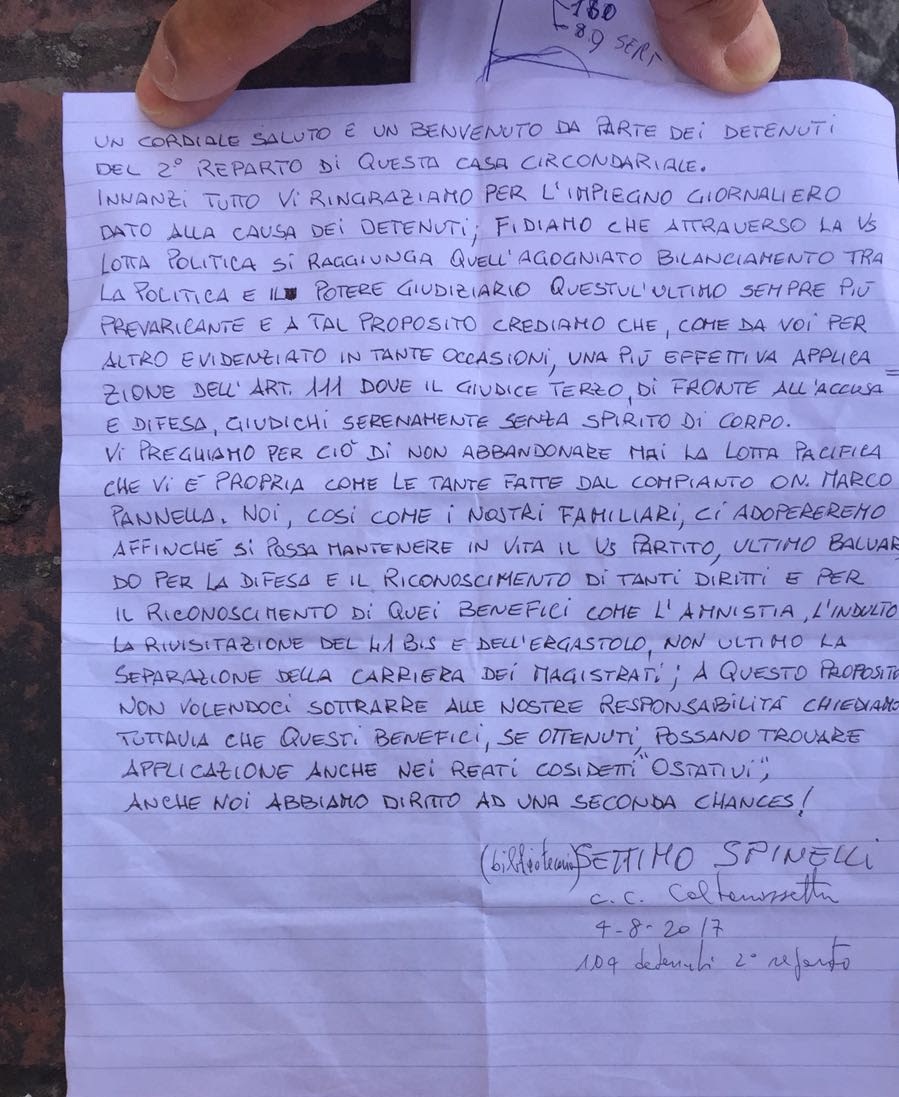 180
89 SERT
UN CORDIALE SALUTO E UN BENVENUTO DA PARTE DEI DETENUTI
DEL 2° REPARTO DI QUESTA CASA CIRCONDARIALE.
INNANZI TUTTO VI RINGRAZIAMO PER L'IMPIEGNO GIORNALIERO
DATO ALLA CAUSA DEI DETENUTI; FIDIAMO CHE ATTRAVERSO LA VS
LOTTA POLITICA SI RAGGIUNGA QUELL'AGOGNIATO BILANCIAMENTO TRA
LA POLITICA E IL POTERE GIUDIZIARIO QUESTUL'ULTIMO SEMPRE PIÙ
PREVARICANTE E A TAL PROPOSITO CREDIAMO CHE, COME DA VOI PER
ALTRO EVIDENZIATO IN TANTE OCCASIONI, UNA PIÙ EFFETTIVA APPLICA=
ZIONE DELL'ART. 111 DOVE IL GIUDICE TERZO, DI FRONTE ALL'ACCUSA
E DIFESA, GIUDICHI SERENAMENTE SENZA SPIRITO DI CORPO.
VI PREGHIAMO PER CIÒ DI NON ABBANDONARE MAI LA LOTTA PACIFICA
CHE VI E' PROPRIA COME LE TANTE FATTE DAL COMPIANTO ON. MARCO
PANNELLA. NOI, COSI COME I NOSTRI FAMILIARI, CI ADOPEREREMO
AFFINCHÈ SI POSSA MANTENERE IN VITA IL VS PARTITO, ULTIMO BALUAR
DO PER LA DIFESA E IL RICONOSCIMENTO DI TANTI DIRITTI E PER
IL RICONOSCIMENTO DI QUEI BENEFICI COME L'AMNISTIA, L'INDULTO
LA RIVISITAZIONE DEL 41 BIS E DELL'ERGASTOLO, NON ULTIMO LA
SEPARAZIONE DELLA CARRIERA DEI MAGISTRATI; A QUESTO PROPOSITO
NON VOLENDOCI SOTTRARRE ALLE NOSTRE RESPONSABILITÁ CHIEDIAMO
TUTTAVIA CHE QUESTI BENEFICI, SE OTTENUTI, POSSANO TROUARE
APPLICAZIONE ANCHE NEI REATI COSIDETTI "OSTATIVI",
ANCHE NOI ABBIAMO DIRITTO AD UNA SECONDA CHANCES!
(bibliotecario) SETTIMO SPINELLI
C.C. Caltanissetta
4-8-2017
109 detenuti 2° reparto